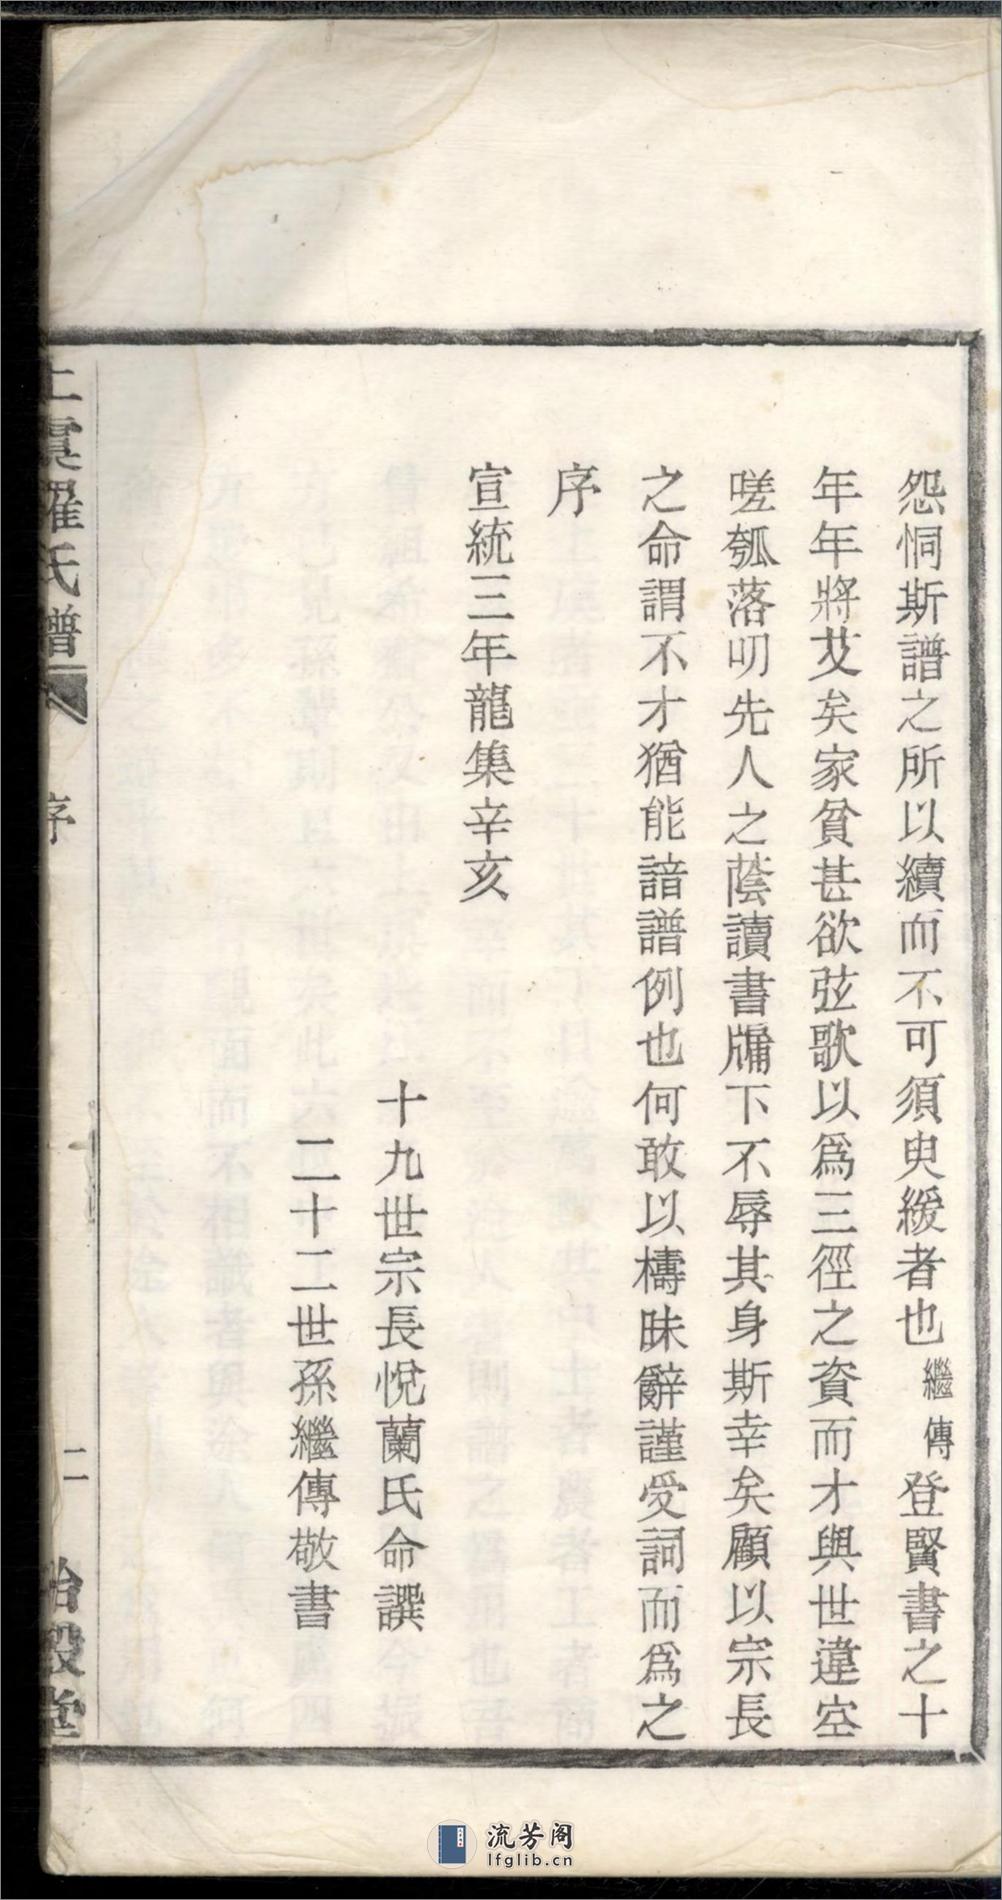 怨恫斯譜之所以續而不可須臾緩者也繼傳登賢書之十
年年將艾矣家貧甚欲弦歌以爲三徑之資而才與世違空
嗟瓠落叨先人之蔭讀書牖下不辱其身斯幸矣顧以宗長
之命謂不才猶能諳譜例也何敢以檮昧辭謹受詞而爲之
序
宣統三年龍集辛亥
十九世宗長悅蘭氏命譔
二十二世孫繼傳敬書
上虞羅氏譜
序
二
流芳阁
lfglib.cn